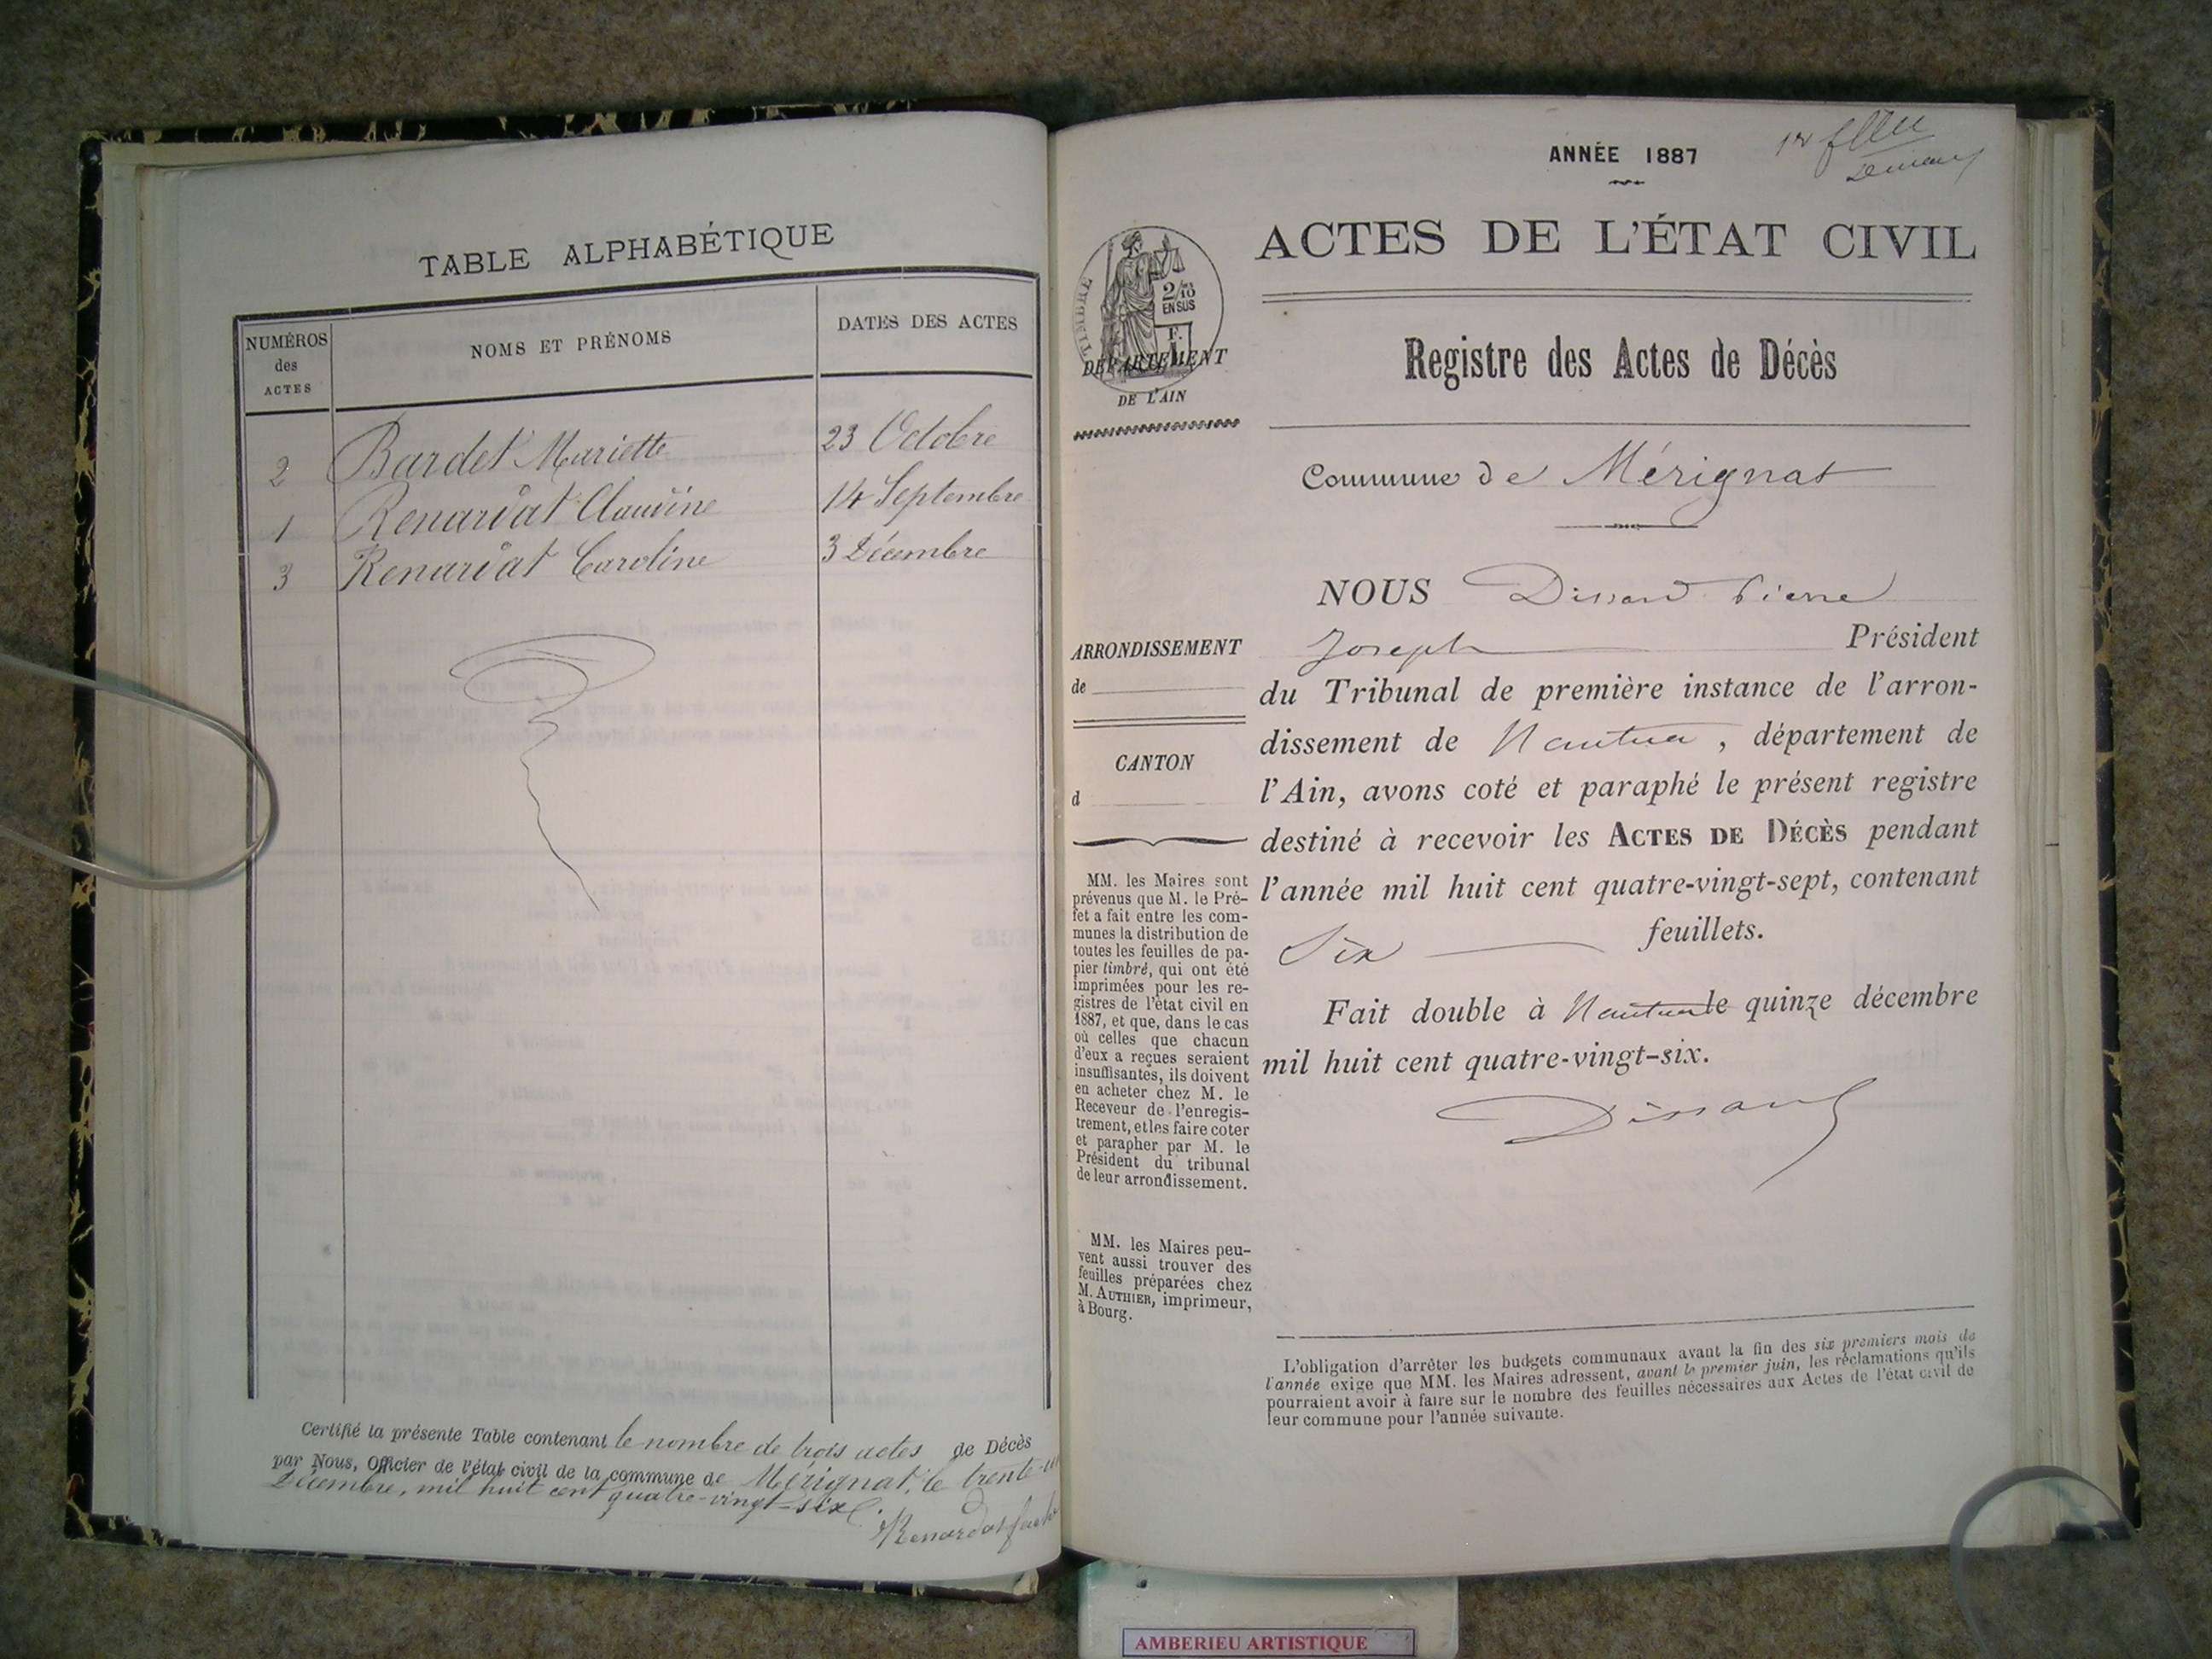 TABLE ALPHABÉTIQUE
NUMÉROS
des
ACTES
NOMS ET PRÉNOMS
DATES DES ACTES
2 Bardet Mariette 23 Octobre
1 Renardat Claudine 14 Septembre
3 Renardat Caroline 3 Décembre
Certifié la présente Table contenant le nombre de trois actes de Décès
par Nous, Officier de l'état civil de la commune de Mérignat, le trente-un
Décembre, mil huit cent quatre-vingt-six.
Renardat
ANNÉE 1887
1er
ACTES DE L'ÉTAT CIVIL
TIMBRE
2/10
EN SUS
DÉPARTEMENT
DE L'AIN
Registre des Actes de Décès
Commune de Mérignat
NOUS Dissard Pierre
Joseph Président
du Tribunal de première instance de l'arron-
dissement de Nantua, département de
l'Ain, avons coté et paraphé le présent registre
destiné à recevoir les ACTES DE DÉCÈS pendant
l'année mil huit cent quatre-vingt-sept, contenant
Six feuillets.
Fait double à Nantua le quinze décembre
mil huit cent quatre-vingt-six.
Dissard
ARRONDISSEMENT
de
CANTON
d
MM. les Maires sont
prévenus que M. le Pré-
fet a fait entre les com-
munes la distribution de
toutes les feuilles de pa-
pier timbré, qui ont été
imprimées pour les re-
gistres de l'état civil en
1887, et que, dans le cas
où celles que chacun
d'eux a reçues seraient
insuffisantes, ils doivent
en acheter chez M. le
Receveur de l'enregis-
trement, et les faire coter
et parapher par M. le
Président du tribunal
de leur arrondissement.
MM. les Maires peu-
vent aussi trouver des
feuilles préparées chez
M. AUTHIER, imprimeur,
à Bourg.
L'obligation d'arrêter les budgets communaux avant la fin des six premiers mois de
l'année exige que MM. les Maires adressent, avant le premier juin, les réclamations qu'ils
pourraient avoir à faire sur le nombre des feuilles nécessaires aux Actes de l'état civil de
leur commune pour l'année suivante.
AMBERIEU ARTISTIQUE